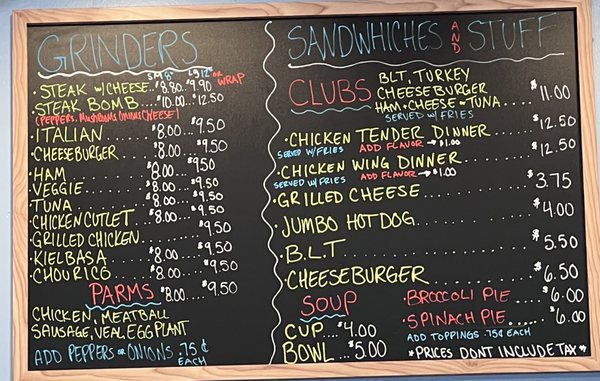 GRINDERS
SM 8" LG 12" OR WRAP
• STEAK W/CHEESE.. $8.80. $9.90
• STEAK BOMB.... $10.00... $12.50
(PEPPERS, MUSHROOMS, ONIONS, CHEESE)
• ITALIAN....... $8.00... $9.50
• CHEESEBURGER... $8.00... $9.50
• HAM........... $8.00... $9.50
• VEGGIE........ $8.00... $9.50
• TUNA.......... $8.00... $9.50
• CHICKEN CUTLET.. $8.00... $9.50
• GRILLED CHICKEN....... $9.50
• KIELBASA...... $8.00... $9.50
• CHOURICO...... $8.00... $9.50
PARMS $8.00.... $9.50
CHICKEN, MEATBALL
SAUSAGE, VEAL, EGGPLANT
ADD PEPPERS OR ONIONS .75¢ EACH
SANDWHICHES AND STUFF
CLUBS
BLT, TURKEY
CHEESEBURGER
HAM+CHEESE • TUNA.... $11.00
SERVED W/FRIES
• CHICKEN TENDER DINNER.... $12.50
SERVED W/FRIES ADD FLAVOR → $1.00
• CHICKEN WING DINNER...... $12.50
SERVED W/FRIES ADD FLAVOR → $1.00
• GRILLED CHEESE........... $3.75
• JUMBO HOT DOG............ $4.00
• B.L.T.................... $5.50
• CHEESEBURGER............. $6.50
SOUP
CUP... $4.00
BOWL... $5.00
• BROCCOLI PIE.... $6.00
• SPINACH PIE..... $6.00
ADD TOPPINGS .75¢ EACH
*PRICES DONT INCLUDE TAX*